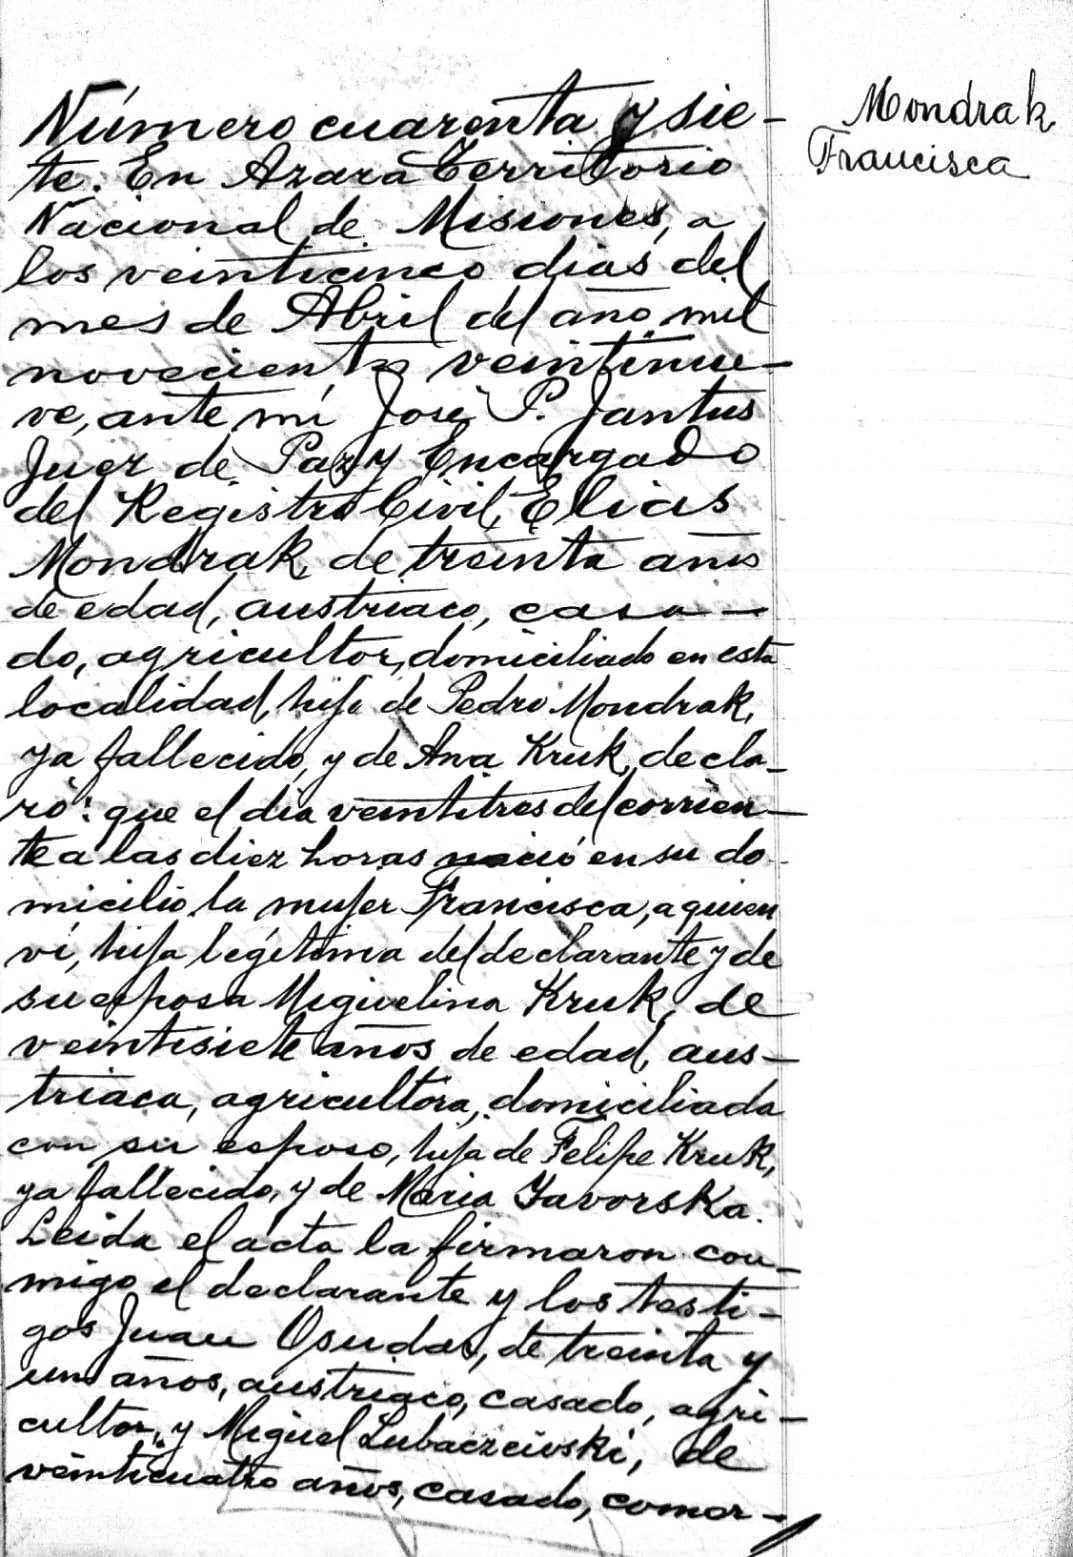 Mondrak
Francisca
Número cuarenta y sie-
te. En Azara Territorio
Nacional de Misiones, a
los veinticinco dias del
mes de Abril del año mil
novecientos veintinue-
ve, ante mí José P. Jantus
Juez de Paz y Encargado
del Registro Civil, Elias
Mondrak, de treinta años
de edad, austriaco, casa-
do, agricultor, domiciliado en esta
localidad, hijo de Pedro Mondrak,
ya fallecido, y de Ana Kruk, decla-
ró: que el dia veintitres del corrien-
te a las diez horas nació en su do-
micilio la mujer Francisca, a quien
ví, hija legítima del declarante y de
su esposa Miguelina Kruk, de
veintisiete años de edad, aus-
triaca, agricultora, domiciliada
con su esposo, hija de Felipe Kruk,
ya fallecido, y de Maria Yavorska.
Leida el acta la firmaron con-
migo el declarante y los testi-
gos Juan Osudar, de treinta y
un años, austriaco, casado, agri-
cultor, y Miguel Lubaczeiwski, de
veinticuatro años, casado, comer-